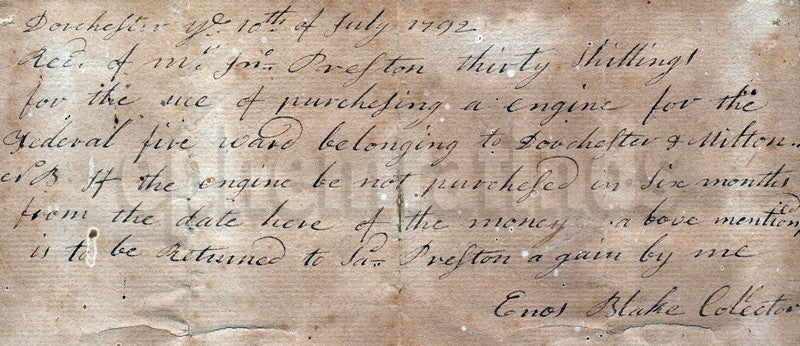 Dorchester ye 10th of July 1792
Recd. of mr Jno. Preston thirty Shillings
for the uce of purchesing a engine for the
Federal five ward belonging to Dorchester & Milton.
NB If the engine be not purchesed in six months
from the date here of the money above mentiond
is to be Returned to Preston again by me
Enos Blake Colector